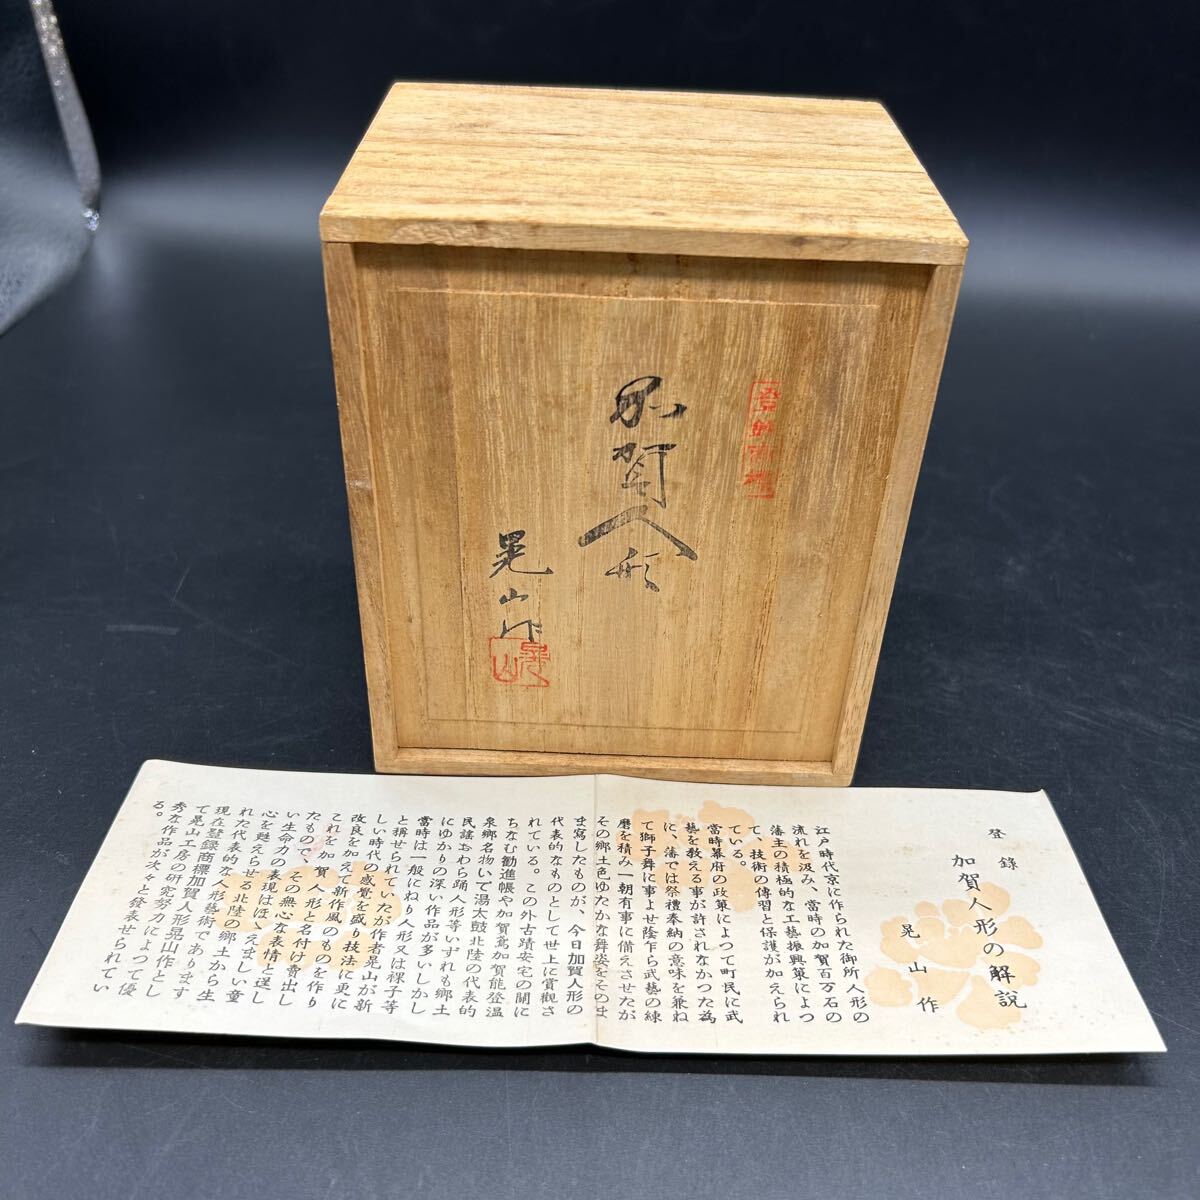 登録商標
加賀人形
晃山作
晃山
登録
加賀人形の解説
晃山作
江戸時代京に作られた御所人形の
流れを汲み、當時の加賀百万石の
藩主の積極的な工藝振興策によつ
て、技術の傳習と保護が加えられ
ている。
當時幕府の政策によつて町民に武
藝を教える事が許されなかつた為
に、藩では祭禮奉納の意味を兼ね
て獅子舞に事よせ陰乍ら武藝の練
磨を積み一朝有事に備えさせたが
その郷土色ゆたかな舞姿をそのま
ま寫したものが、今日加賀人形の
代表的なものとして世上に賞観さ
れている。この外古蹟安宅の關に
ちなむ勧進帳や加賀鳶加賀能登温
泉郷名物いで湯太鼓北陸の代表的
民謡おわら踊人形等いずれも郷土
にゆかりの深い作品が多いしかし
當時は一般にねり人形又は裸子等
と稱せられていたが作者晃山が新
しい時代の感覚を盛り技法に更に
改良を加えて新作風のものを作り
これを加賀人形と名付け賣出し
たもので、その無心な表情と逞し
い生命力の表現はほゝえましい童
心を甦えらせる北陸の郷土から生
れた代表的な人形藝術であります
現在登録商標加賀人形晃山作とし
て晃山工房の研究努力によつて優
秀な作品が次々と發表せられてい
る。